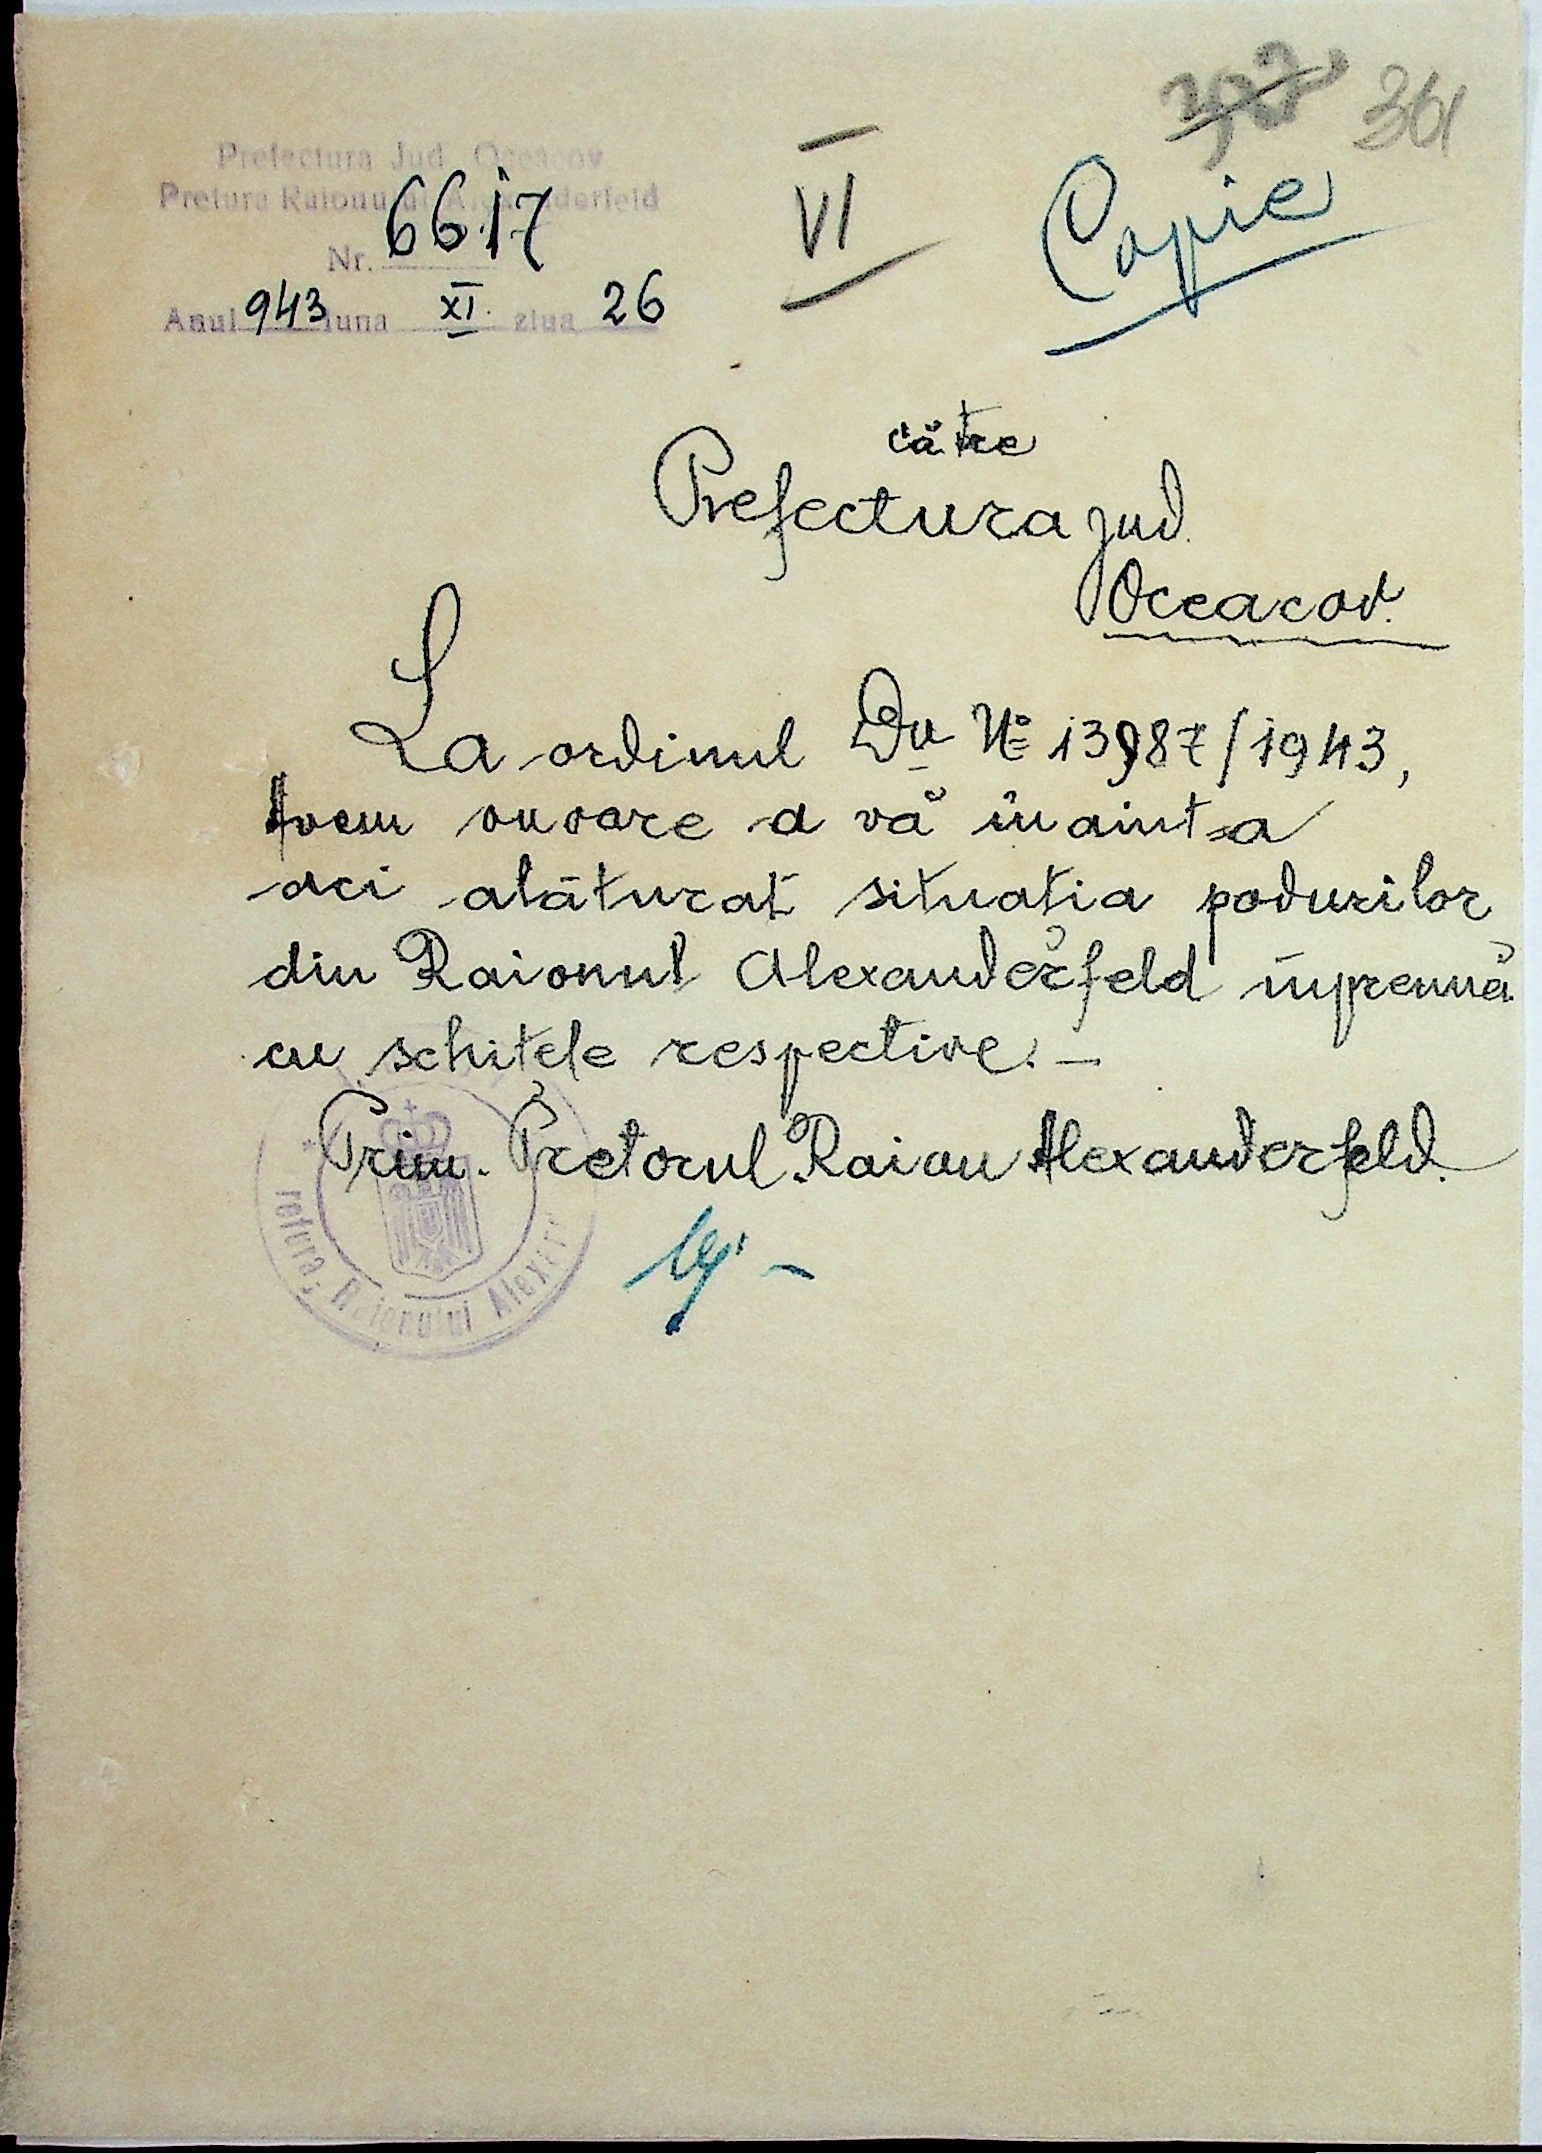 361
Prefectura Jud. Oceacov
Pretura Raionului Alexanderfeld
Nr. 6617
Anul 943 luna XI. ziua 26
VI
Copie
către
Prefectura jud.
Oceacov.
La ordinul Dv. № 13987/1943,
Avem onoare a vă înainta
aci alăturat situatia podurilor
din Raionul Alexanderfeld înpreună
cu schitele respective. –
Prim. Pretorul Raion Alexanderfeld.
retura, Raionului Alexan